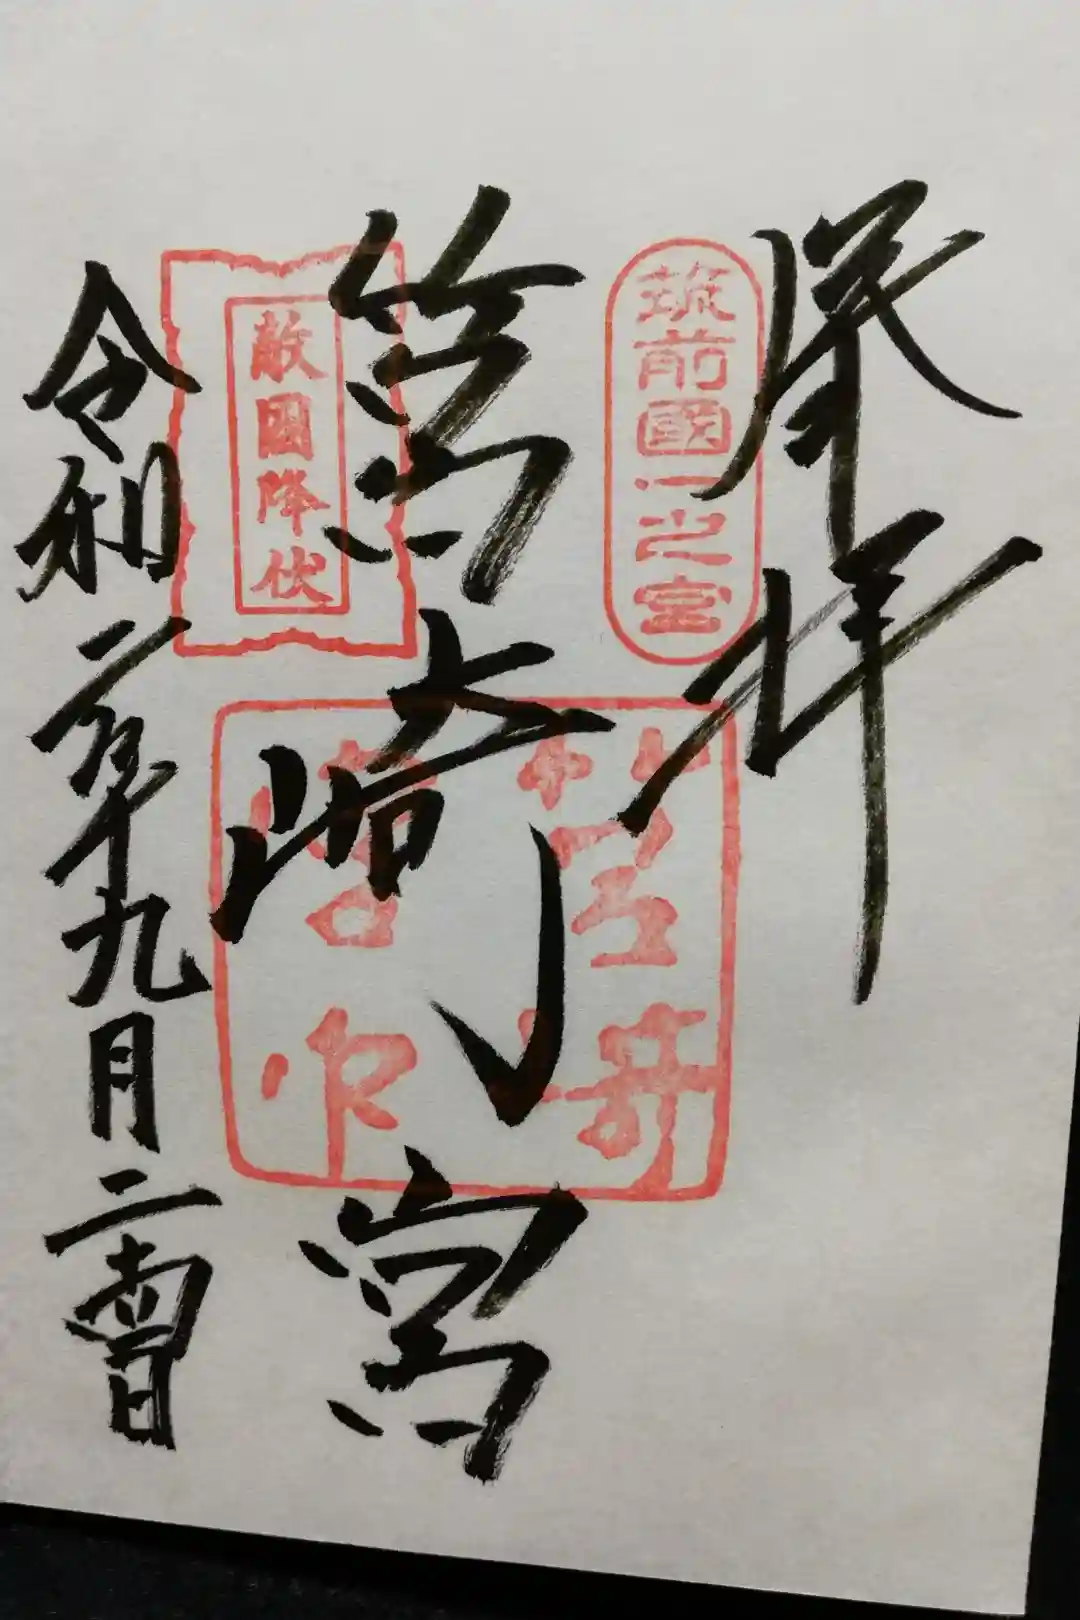 奉拝
筑前國一之宮
筥崎宮
筥崎宮印
敵國降伏
令和二年九月二十四日